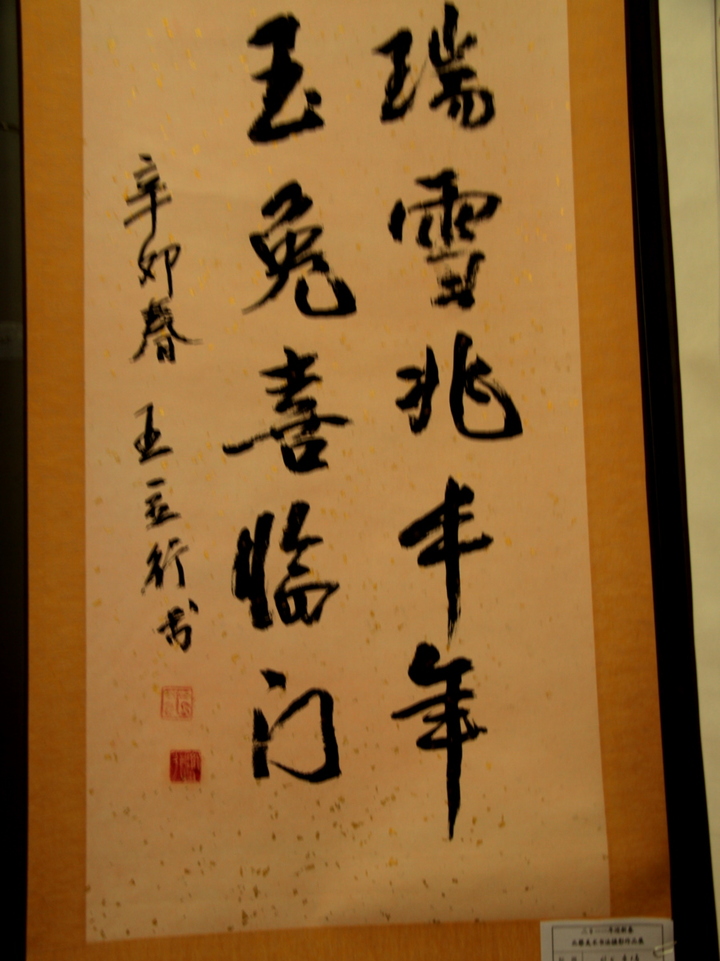 瑞雪兆丰年
玉兔喜临门
辛卯春 王立行书